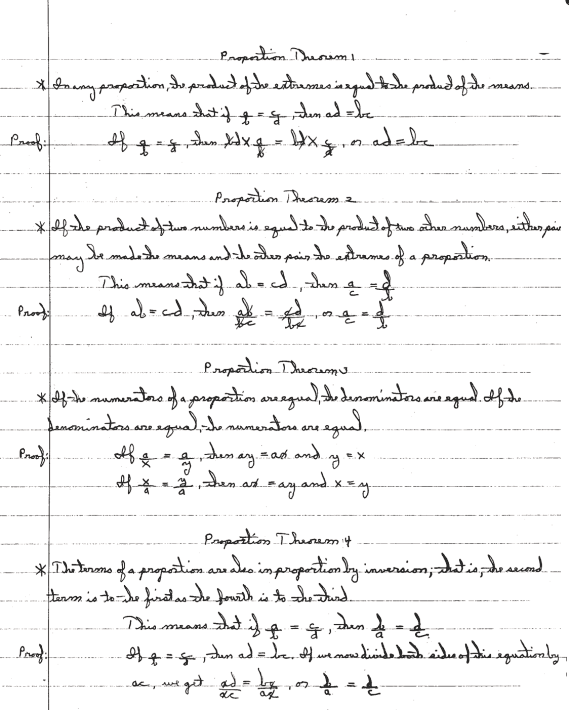 Proportion Theorem 1
* In any proportion, the product of the extremes is equal to the product of the means.
This means that if a/b = c/d, then ad = bc
Proof: If a/b = c/d, then bd × a/b = bd × c/d, or ad = bc
Proportion Theorem 2
* If the product of two numbers is equal to the product of two other numbers, either pair
may be made the means and the other pair the extremes of a proportion.
This means that if ab = cd, then a/c = d/b
Proof: If ab = cd, then ab/bc = cd/bc, or a/c = d/b
Proportion Theorem 3
* If the numerators of a proportion are equal, the denominators are equal. If the
denominators are equal, the numerators are equal.
Proof: If a/x = a/y, then ay = ax and y = x
If x/a = y/a, then ax = ay and x = y
Proportion Theorem 4
* The terms of a proportion are also in proportion by inversion; that is, the second
term is to the first as the fourth is to the third.
This means that if a/b = c/d, then b/a = d/c
Proof: If a/b = c/d, then ad = bc. If we now divide both sides of this equation by
ac, we get ad/ac = bc/ac, or b/a = d/c